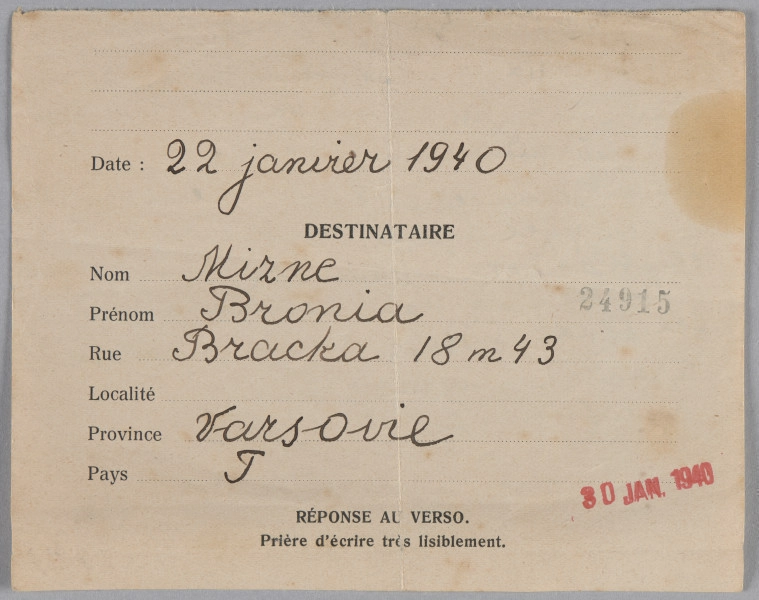 Date : 22 janvier 1940
DESTINATAIRE
Nom Mizne
24915
Prénom Bronia
Rue Bracka 18 m 43
Localité
Province Varsovie
Pays
30 JAN. 1940
RÉPONSE AU VERSO.
Prière d'écrire très lisiblement.